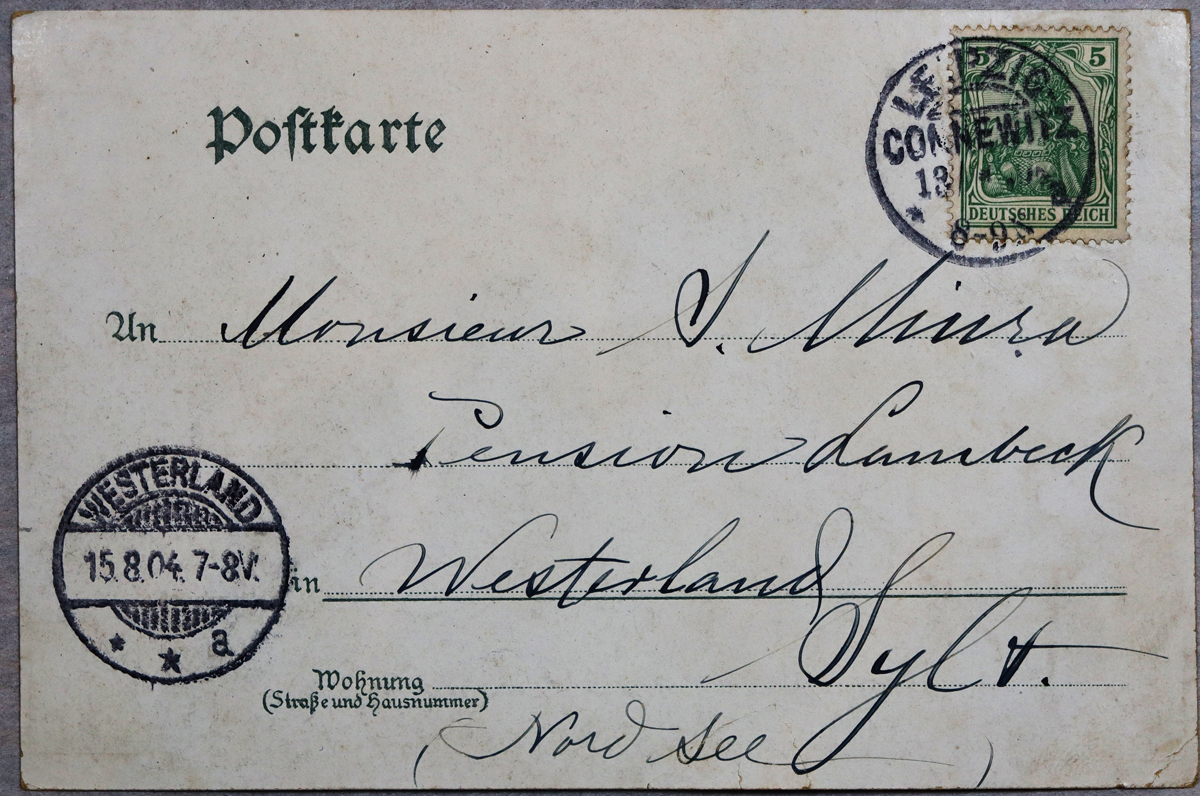 Postkarte
5 5
DEUTSCHES REICH
LEIPZIG
CONNEWITZ
13
a
8-9N
An Monsieur S. Miura
Pension Lambeck
in Westerland
Sylt.
Wohnung
(Straße und Hausnummer)
(Nord See)
WESTERLAND
15.8.04. 7-8V.
a